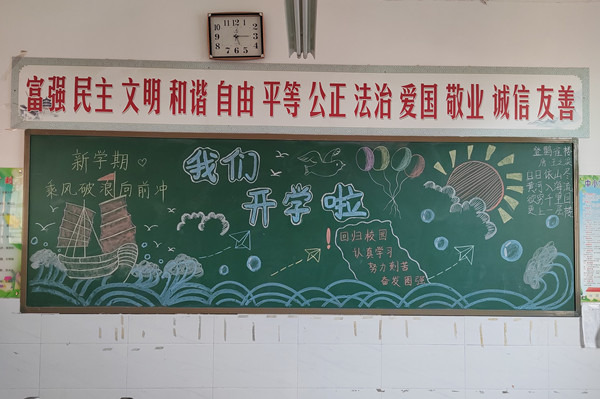 富强 民主 文明 和谐 自由 平等 公正 法治 爱国 敬业 诚信 友善
新学期
乘风破浪向前冲
我们
开学啦
!
回归校园
认真学习
努力刻苦
奋发图强
登鹳雀楼
白日依山尽
黄河入海流
欲穷千里目
更上一层楼